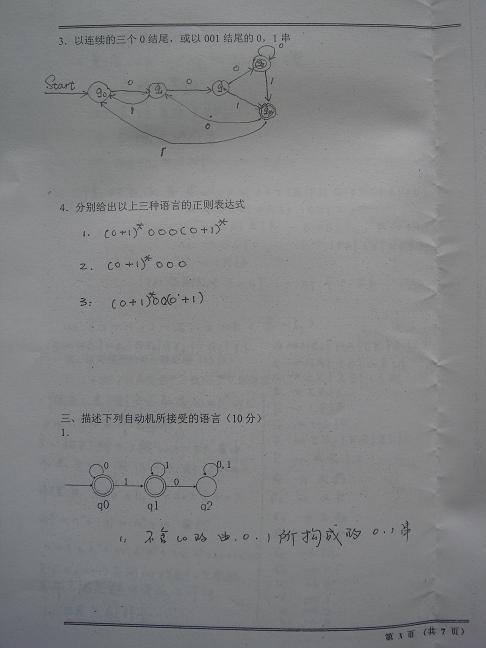 3. 以连续的三个0结尾，或以001结尾的0，1串
Start
0
0
0
0
1
1
1
0
1
q0
4. 分别给出以上三种语言的正则表达式
1. (0+1)*000(0+1)*
2. (0+1)*000
3: (0+1)*00(0+1)
三、描述下列自动机所接受的语言(10分)
1.
0
1
0,1
1
0
q0
q1
q2
1, 不含10的由0.1所构成的0.1串
第 3 页 (共 7 页)